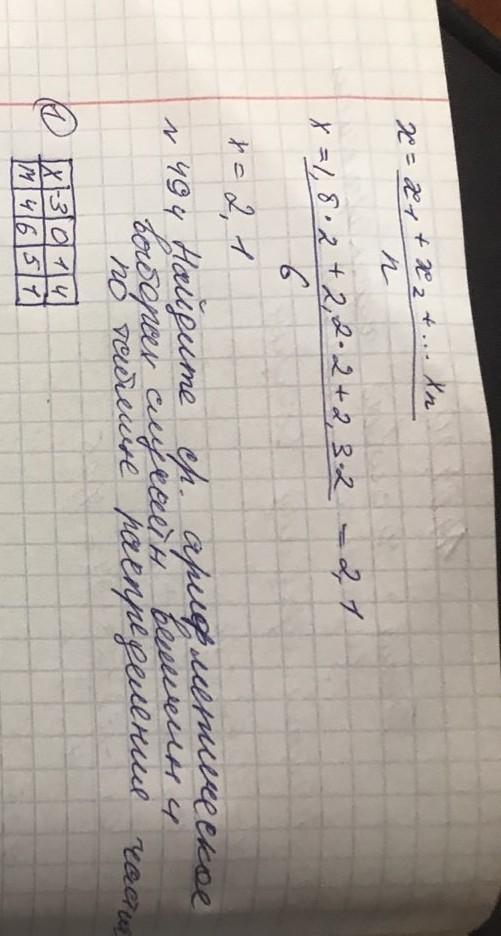 x = x₁ + x₂ + ... xₙ
n
x = 1,8·2 + 2,2·2 + 2,3·2 = 2,1
6
x = 2,1
№ 494 Найдите ср. арифметическое
выборки случайн величин
по таблице распределение част
1
X 3 0 1 4
M 4 6 5 1